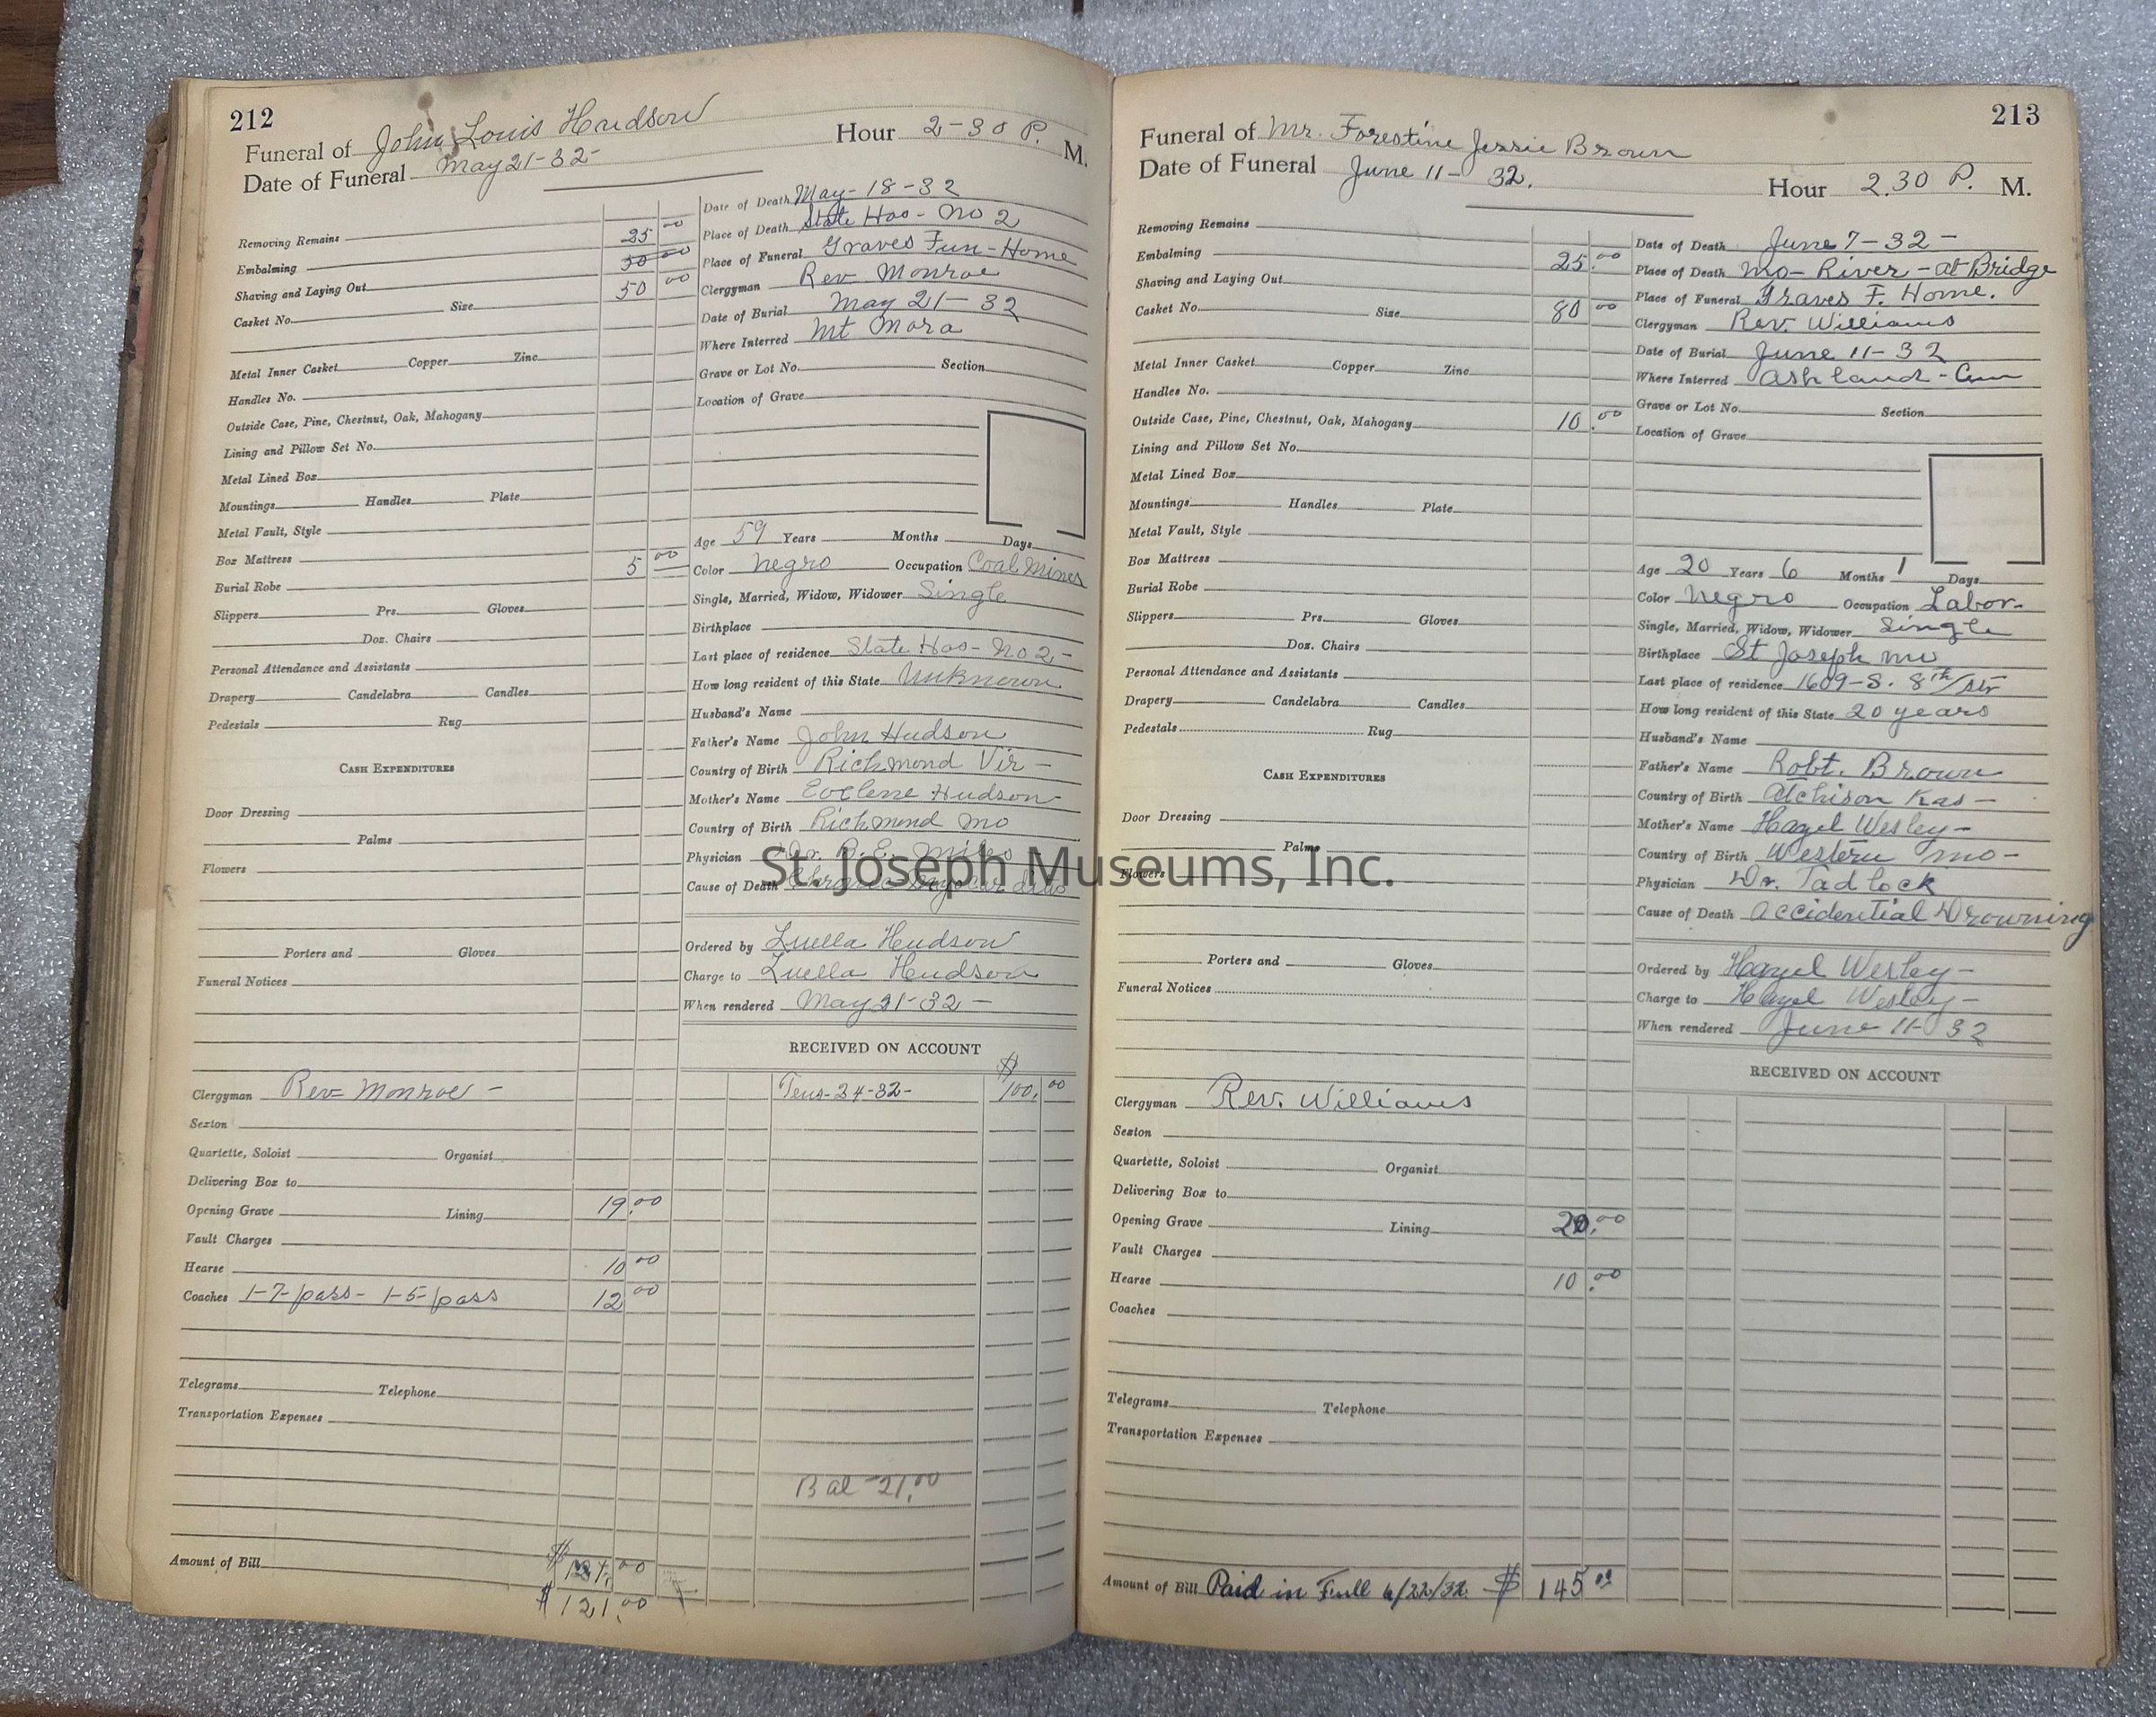 212
Funeral of John Louis Hudson Hour 2-30 P. M.
Date of Funeral May 21-32-
Removing Remains
Embalming 25 00
Shaving and Laying Out 50 00
Casket No. Size 50 00
Metal Inner Casket Copper Zinc
Handles No.
Outside Case, Pine, Chestnut, Oak, Mahogany
Lining and Pillow Set No.
Metal Lined Box
Mountings Handles Plate
Metal Vault, Style
Box Mattress
Burial Robe 5 00
Slippers Prs. Gloves
Doz. Chairs
Personal Attendance and Assistants
Drapery Candelabra Candles
Pedestals Rug
CASH EXPENDITURES
Door Dressing
Palms
Flowers
Porters and Gloves
Funeral Notices
Clergyman Rev Monroe -
Sexton
Quartette, Soloist Organist
Delivering Box to
Opening Grave Lining 19.00
Vault Charges
Hearse 10 00
Coaches 1-7-pass- 1-5-pass 12 00
Telegrams Telephone
Transportation Expenses
Amount of Bill
$121.00
Date of Death May-18-32
Place of Death State Hos- No 2
Place of Funeral Graves Fun-Home
Clergyman Rev Monroe
Date of Burial May 21-32
Where Interred Mt Mora
Grave or Lot No. Section
Location of Grave
Age 59 Years Months Days
Color Negro Occupation Coal Miner
Single, Married, Widow, Widower Single
Birthplace
Last place of residence State Hos- No 2-
How long resident of this State Unknown
Husband's Name
Father's Name John Hudson
Country of Birth Richmond Vir-
Mother's Name Hudson
Country of Birth Richmond Mo
Physician Dr. R. E. Miles
Cause of Death Chronic Myocarditis
Ordered by Luella Hudson
Charge to Luella Hudson
When rendered May 21-32-
RECEIVED ON ACCOUNT
24-32- $100.00
Bal 21.00
213
Funeral of Mr. Forestine Jessie Brown
Date of Funeral June 11-32. Hour 2.30 P. M.
Removing Remains
Embalming 25.00
Shaving and Laying Out
Casket No. Size 80 00
Metal Inner Casket Copper Zinc
Handles No.
Outside Case, Pine, Chestnut, Oak, Mahogany 10.00
Lining and Pillow Set No.
Metal Lined Box
Mountings Handles Plate
Metal Vault, Style
Box Mattress
Burial Robe
Slippers Prs. Gloves
Doz. Chairs
Personal Attendance and Assistants
Drapery Candelabra Candles
Pedestals Rug
CASH EXPENDITURES
Door Dressing
Palms
Flowers
Porters and Gloves
Funeral Notices
Clergyman Rev. Williams
Sexton
Quartette, Soloist Organist
Delivering Box to
Opening Grave Lining 20.00
Vault Charges
Hearse 10.00
Coaches
Telegrams Telephone
Transportation Expenses
Amount of Bill Paid in Full 6/22/32. $145 00
Date of Death June 7-32-
Place of Death Mo-River-at Bridge
Place of Funeral Graves F. Home.
Clergyman Rev. Williams
Date of Burial June 11-32
Where Interred Ashland-Cem
Grave or Lot No. Section
Location of Grave
Age 20 Years 6 Months 1 Days
Color Negro Occupation Labor-
Single, Married, Widow, Widower Single
Birthplace St Joseph Mo
Last place of residence 1609-S. 8th/Str
How long resident of this State 20 years
Husband's Name
Father's Name Robt. Brown
Country of Birth Atchison Kas-
Mother's Name Hazel Wesley-
Country of Birth Western Mo-
Physician Dr. Tadlock
Cause of Death Accidential Drowning
Ordered by Hazel Wesley-
Charge to Hazel Wesley-
When rendered June 11-32
RECEIVED ON ACCOUNT
St. Joseph Museums, Inc.